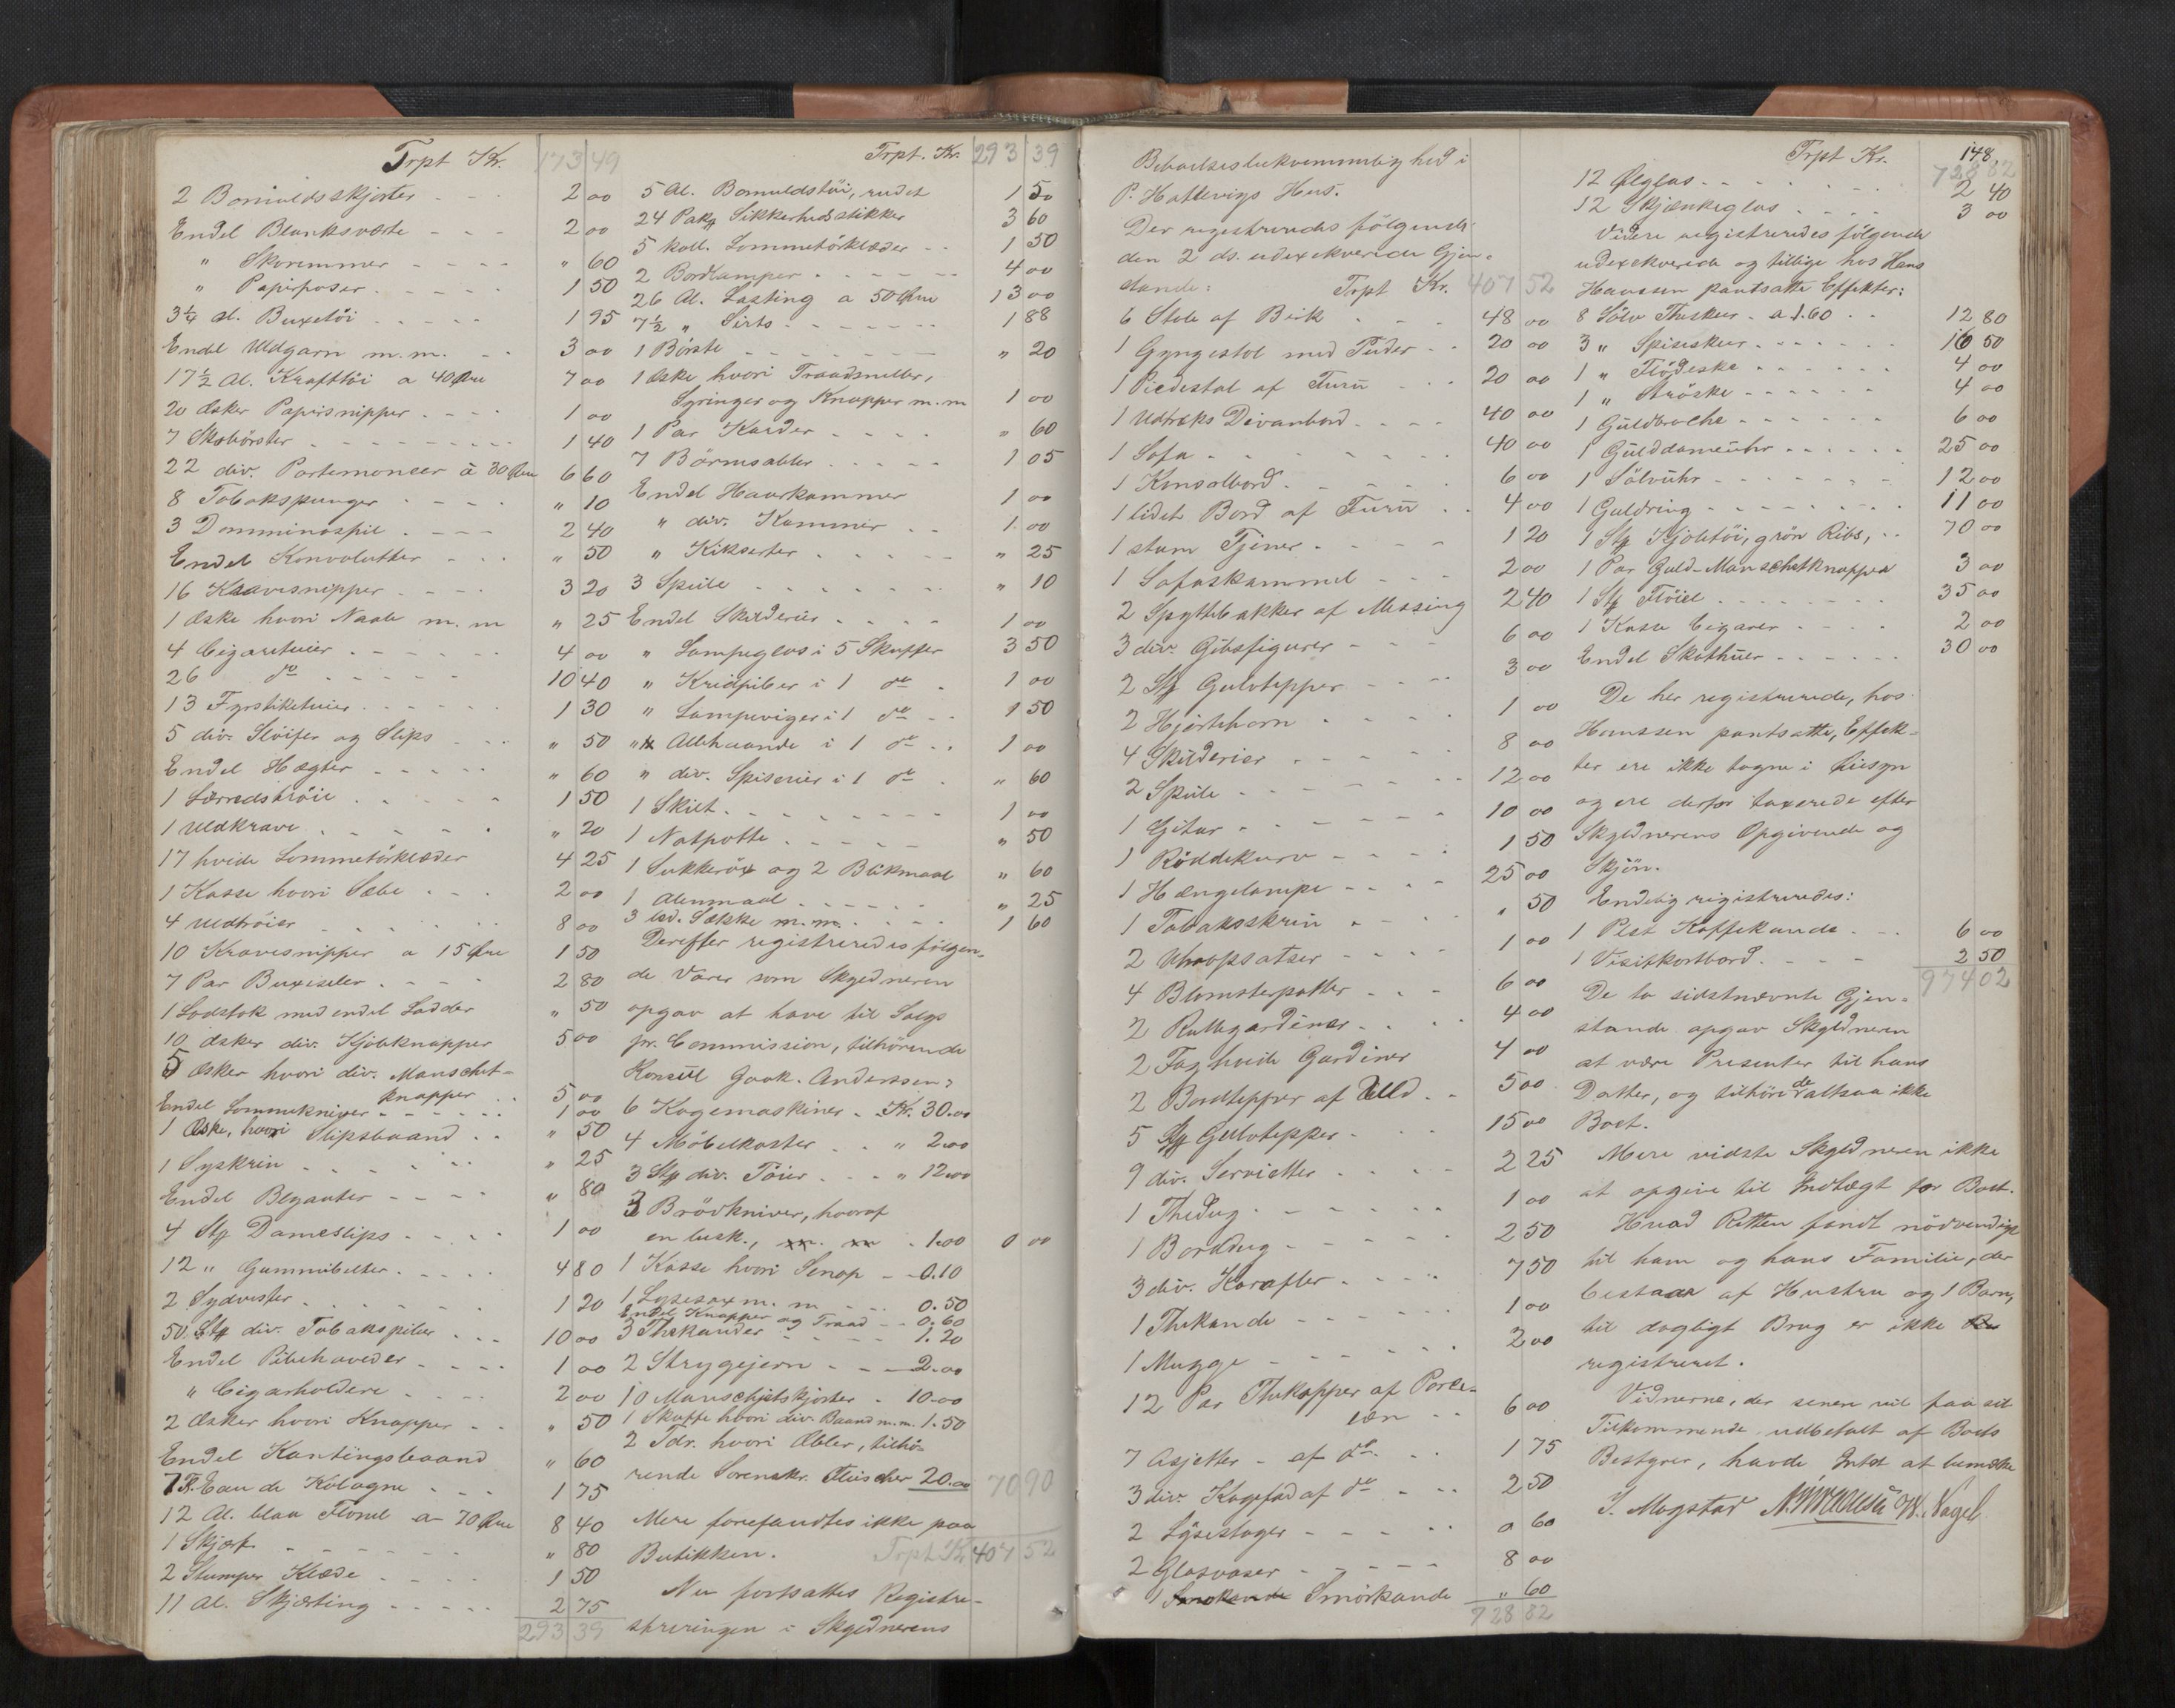 Trpt Kr. 173 49
2 Bomuldsskjorter - - - 2 00
Endel Blanksværte - - - 2 00
" Skoremmer - - - - " 60
" Papirposer - - - - 1 50
3 1/4 al. Buxetöi - - - - 1 95
Endel Uldgarn m.m. - - 3 00
17 1/2 Al. Krafttöi a 40 Øre 7 00
20 Æsker Papirsnipper - - - - 1 00
7 Skobörster - - - - - 1 40
22 div. Portemoneer à 30 Øre 6 60
8 Tobakspunger - - - - " 10
3 Domminospil - - - - 2 40
Endel Konvolutter - - - " 50
16 Kravesnipper - - - - 3 20
1 Æske hvori Naale m.m " 25
4 Cigaretuier - - - - 4 00
26 do - - - - 10 40
13 Fyrstiketuier - - - - 1 30
5 div. Slöifer og Slips - - - " 50
Endel Hægter - - - - " 60
1 Lærredströie - - - - 1 50
1 Uldkrave - - - - " 20
17 hvide Lommetörklæder 4 25
1 Kasse hvori Sæbe - - - 2 00
4 Uldtröier - - - - 8 00
10 Kravesnipper a 15 Øre 1 50
7 Par Buxeseler - - - - 2 80
1 Lodstok med endel Lodder " 50
10 Æsker div. Kjoleknapper 5 00
5 Æsker hvori div. Manschet-
knapper - - 5 00
Endel Lommekniver - - - - 1 00
1 Æske, hvori Slipsbaand - - " 50
1 Syskrin - - - - " 25
Endel Blyanter - - - - " 80
4 Stk Dameslips - - - - 1 00
12 " Gummibelter - - - - 4 80
2 Sydvester - - - - 1 20
50 Stk div. Tobakspiber - - - 10 00
Endel Pibehoveder - - - - 1 00
" Cigarholdere - - - - 2 00
2 Æsker hvori Knapper - - " 50
Endel Kantingsbaand " 60
7 Fl. Eau de Kologne - - - 1 75
12 Al. blaa Flonel a 70 Øre 8 40
1 Skjærf - - - - " 80
2 Stumper Klæde - - - - 1 50
11 Al. Skjærting - - - - 2 75
293 39
Trpt. Kr. 293 39
5 Al. Bomuldstöi, rudet 1 50
24 Pakk Sikkerhedsstikker 3 60
5 koll. Lommetörklæder - - 1 50
2 Bordlamper - - - - 4 00
26 Al. Lasting a 50 Øre 13 00
7 1/2 " Sirts - - - - 1 88
1 Börste - - - - " 20
1 Æske hvori Traadsneller,
Syringer og Knapper m.m 1 00
1 Par Karder - - - - " 60
7 Börnsabler - - - - 1 05
Endel Haarkammer 1 00
" div. Kammer - - 1 00
" Kikserter - - - - " 25
3 Speile - - - - " 10
Endel Skilderier - - - - 1 00
" Lampeglas i 5 Skuffer 3 50
" Kridpiber i 1 do - 1 00
" Lampeviger i 1 do - - 1 50
" Allehaande i 1 do - - 1 00
" div. Spiserier i 1 do - " 60
1 Skilt - - - - 1 00
1 Natpotte - - - - " 50
1 Sukkeröx og 2 Blikmaal " 60
1 Alenmaal - - - - " 25
3 led. Sække m.m. - - - 1 60
Derefter registreredes følgen-
de Varer som Skyldneren
opgav at have til Salgs
pr. Commission, tilhörende
Konsul Joak. Anderssen:
6 Kogemaskiner - Kr. 30.00
4 Möbelkoster - - " 2.00
3 Stk div. Töier - - - " 12.00
3 Brödkniver, hvoraf
en lusk., - 1.00 0 00
1 Kasse hvori Senop - - 0.10
1 Lysesax m. m - - 0.50
Endel Knapper og Traad - - 0.60
3 Thekander - - - - 1.20
2 Strygejern - - - 2.00
10 Manschetskjorter - 10.00
1 Skuffe hvori div. Baand m.m. 1.50
2 Tdr. hvori Æbler, tilhö-
rende Sorenskr. Fleischer 20.00 70 90
Mere forefandtes ikke paa
Butikken. Trpt Kr 407 52
Nu fortsattes Registre-
streringen i Skyldnerens
148.
Beboelsesbekvemmelighed i
P. Hattevigs Hus.
Der registreredes fölgende
den 2 ds. udexekverede Gjen-
stande: Trpt Kr. 407 52
6 Stole af Birk - - - 48 00
1 Gyngestol med Puder - - 20 00
1 Piedestal af Furu - - - 20 00
1 Udtræks Divanbord - - - - 40 00
1 Sofa - - - - 40 00
1 Konsolbord - - - - 6 00
1 lidet Bord af Furu - - 4 00
1 stum Tjener - - - - 1 20
1 Sofaskammel - - - 2 00
2 Spyttebakker af Messing 2 40
3 div. Gibsfigurer - - - 6 00
2 Stk Gulvtepper - - - - 3 00
2 Hjortehorn - - - - 1 00
4 Skilderier - - - - 8 00
2 Speile - - - - 12 00
1 Gitar - - - - 10 00
1 Röddekurv - - - - 1 50
1 Hængelampe - - - - 25 00
1 Tobaksskrin - - - " 50
2 Uhropsatser - - - - 1 00
4 Blomsterpotter - - - 6 00
2 Rullegardiner - - - - 4 00
2 Fag hvide Gardiner 4 00
2 Bordtepper af Uld - - 5 00
5 Stk Gulvtepper - - - 15 00
9 div. Servietter - - - - 2 25
1 Thedug - - - - 1 00
1 Borddug - - - - 2 50
3 div. Karafler - - - - 7 50
1 Thekande - - - - 1 00
1 Mugge - - - - 2 00
12 Par Thekopper af Porce-
læn - - 6 00
7 Asjetter - af do - - 1 75
3 div. Kagefad af do - - - 2 50
2 Lysestager - - - - 0 60
2 Glasvaser - - - - 8 00
1 Smörkande " 60
728 82
Trpt Kr. 728 82
12 Ølglas - - - - 2 40
12 Skjænkeglas - - - - 3 00
Videre registreredes fölgende
udexekverede og tillige hos Hans
Hanssen pantsatte Effekter:
8 Sölv Theskeer - a 1.60 - - 12 80
3 " Spiseskeer - - - - 16 50
1 " Flödeske - - - - 4 00
1 " Ströske - - - - 4 00
1 Guldbroche - - - - 6 00
1 Gulddameuhr - - - - 25 00
1 Sölvuhr - - - - 12 00
1 Guldring - - - - 11 00
1 Stk Kjoletöi, grön Ribs, - - 70 00
1 Par Guld-Manschetknapper 3 00
1 Stk Flöiel - - - - 35 00
1 Kasse Cigarer - - - - 2 00
Endel Skothuer - - - - 30 00
De her registrerede, hos
Hanssen pantsatte, Effek-
ter ere ikke tagne i Øiesyn
og ere derfor taxerede efter
Skyldnerens Opgivende og
Skjön.
Endelig registreredes:
1 Plet Kaffekande - - - 6 00
1 Visitkortbord - - - - 2 50
974 02
De to sidstnævnte Gjen-
stande opgav Skyldneren
at være Presenter til hans
Datter, og tilhörer de altsaa ikke
Boet.
Mere vidste Skyldneren ikke
at opgive til Indtægt for Boet.
Hvad Retten fandt nödvendigt
til ham og hans Familie, der
bestaar af Hustru og 1 Barn,
til dagligt Brug er ikke
registreret.
Vidnerne, der senere vil faa sit
Tilkommende udbetalt af Boets
Bestyrer, havde Intet at bemærke
J. Mogstad W. Nagel.